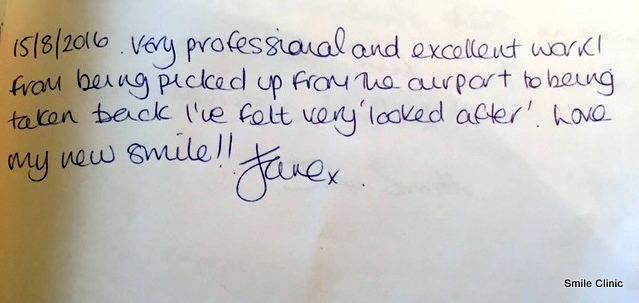 15/8/2016. Very professional and excellent work!
from being picked up from the airport to being
taken back I've felt very 'looked after'. Love
my new smile!! Jane x.
Smile Clinic